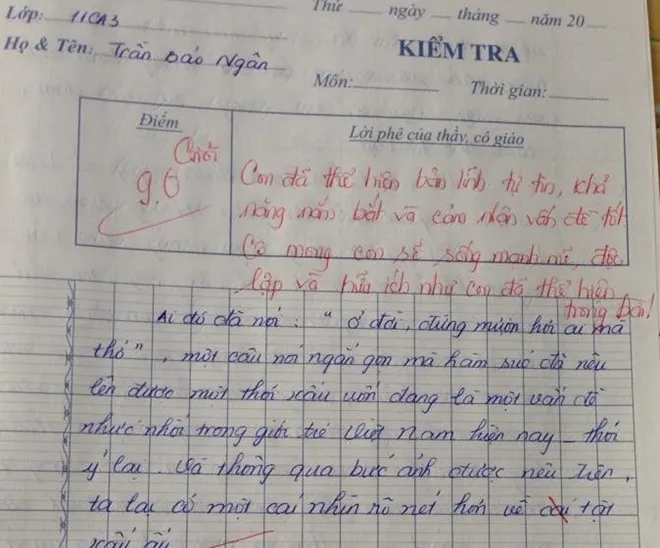 Thứ ngày tháng năm 20
Lớp: 11CA3
Họ & Tên: Trần Bảo Ngân
KIỂM TRA
Môn: Thời gian:
Điểm
Lời phê của thầy, cô giáo
9.0
Con đã thể hiện bản lĩnh tự tin, khả
năng nắm bắt và cảm nhận vấn đề tốt
Cô mong con sẽ sống mạnh mẽ, độc
lập và hữu ích như con đã thể hiện
trong bài!
Ai đó đã nói: "ở đời, đừng mượn hơi ai mà
thở", một câu nói ngắn gọn mà hàm súc đã nêu
lên được một thói xấu vốn đang là một vấn đề
nhức nhối trong giới trẻ Việt Nam hiện nay - thói
ỷ lại. Và thông qua bức ảnh được nêu trên,
ta lại có một cái nhìn rõ nét hơn về cái tật
xấu ấy